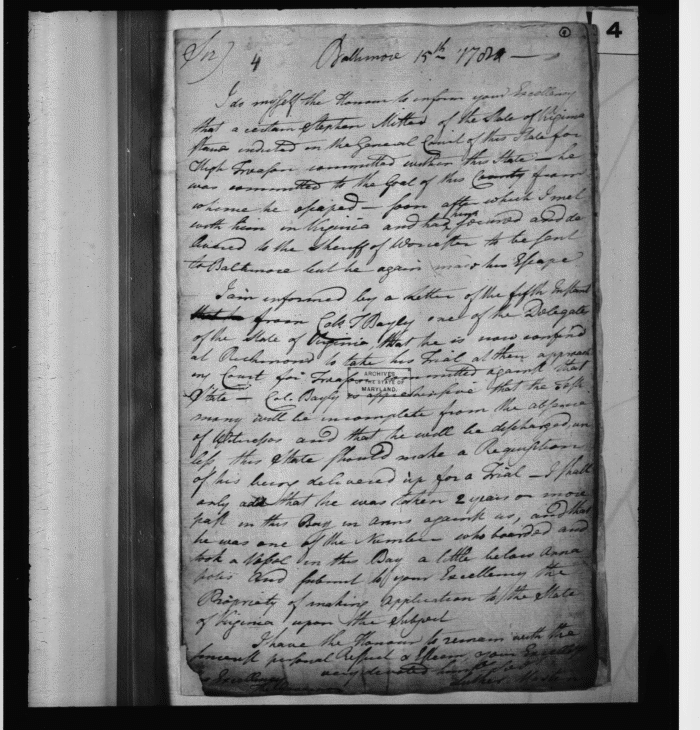 4
4
Sir)
Baltimore 15th 178
I do myself the Honour to inform your Excellency
that a certain Stephen of the State of Virginia
stands indicted in the General Court of this State for
High Treason committed within this State — he
was committed to the Goal of this County from
whence he escaped — soon after which I met
with him in Virginia and had him secured and de
livered to the Sheriff of Worcester to be sent
to Baltimore but he again made his Escape
I am informed by a Letter of the fifth Instant
from Colo T Bayly one of the Delegates
of the State of Virginia that he is now confined
at Richmond to take his Trial at their approach
ing Court for Treason committed against that
State — Colo Bayly is apprehensive that the Testi
mony will be incomplete from the absence
of Witnesses and that he will be discharged un
less this State should make a Requisition
of his being delivered up for a Trial — I shall
only add that he was taken 2 years or more
past in this Bay in arms against us, and that
he was one of the Number who boarded and
took a Vessel in this Bay a little below Anna
polis and submit to your Excellency the
Propriety of making Application to the State
of Virginia upon the Subject
I have the Honour to remain with the
sincerest personal Respect & Esteem your Excellency's
very devoted
Luther Martin
his Excellency
ARCHIVES
OF THE STATE OF
MARYLAND.